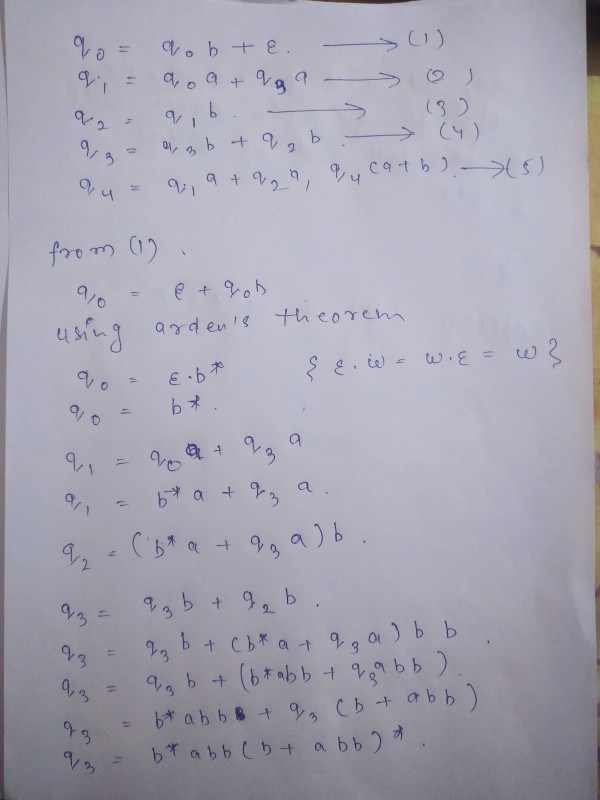 q0 = q0b + ε. ⟶ (1)
q1 = q0a + q3a ⟶ (2)
q2 = q1b. ⟶ (3)
q3 = q3b + q2b. ⟶ (4)
q4 = q1a + q2a, q4(a+b). ⟶ (5)
from (1).
q0 = ε + q0b
using arden's theorem
q0 = ε.b* { ε.w = w.ε = w }
q0 = b*.
q1 = q0a + q3a
q1 = b*a + q3a.
q2 = (b*a + q3a)b.
q3 = q3b + q2b.
q3 = q3b + (b*a + q3a)bb.
q3 = q3b + (b*abb + q3abb).
q3 = b*abb + q3(b + abb)
q3 = b*abb(b + abb)*.